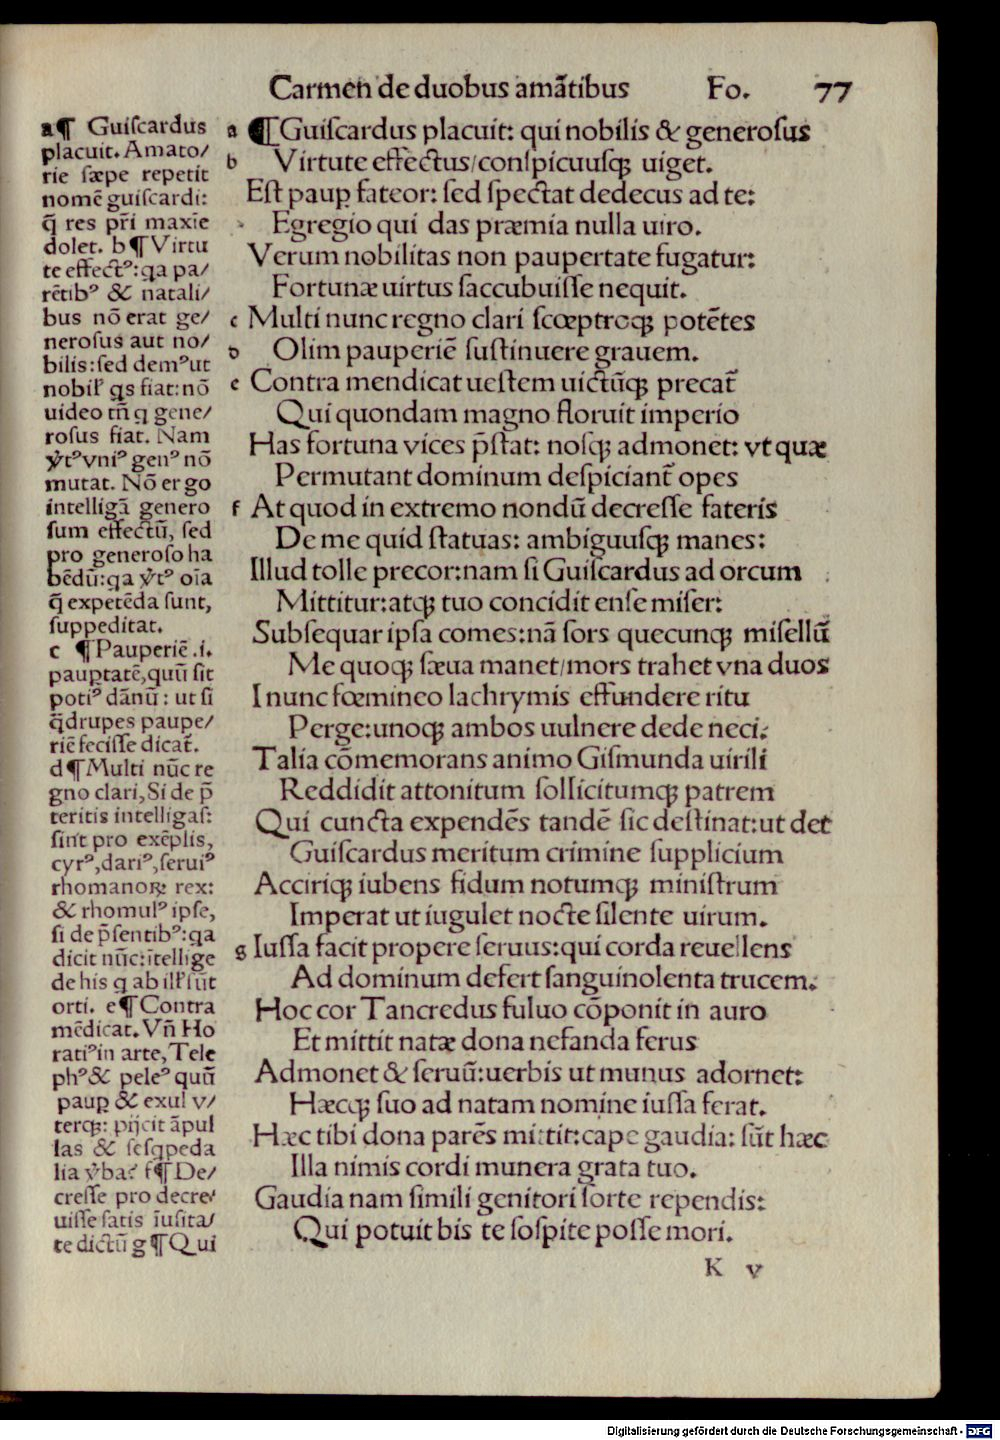 Carmen de duobus amātibus Fo. 77
a¶ Guiſcardus
placuit. Amato/
rie ſæpe repetit
nomē guiſcardi:
q̄ res pr̄i maxīe
dolet. b¶Virtu
te effectꝰ: qa pa/
rētibꝰ & natali/
bus nō erat ge/
neroſus aut no/
bilis: ſed demꝰ ut
qs fiat: nō
uideo tn̄ q gene/
roſus fiat. Nam
vniꝰ genꝰ nō
mutat. Nō ergo
intelligā genero
ſum effectū, ſed
pro generoſo ha
bēdū: qa oīa
q̄ expetēda ſunt,
ſuppeditat.
c ¶Pauperiē .i.
pauptatē, quū ſit
potiꝰ dānū: ut ſi
q̄drupes paupe/
riē feciſſe dicat̄.
d¶Multi nūc re
gno clari, Si de p̄
teritis intelligas:
ſint pro exēplis,
cyrꝰ, dariꝰ, ſeruiꝰ
rhomanoꝝ rex:
& rhomulꝰ ipſe,
ſi de p̄ſentibꝰ: qa
dicit nūc: ītellige
de his q ab ſūt
orti. e¶Contra
mēdicat. Vn̄ Ho
ratiꝰ in arte, Tele
phꝰ & peleꝰ quū
paup & exul v/
terqꝫ: pijcit āpul
las & ſeſqpeda
lia f¶De/
creſſe pro decre/
uiſſe ſatis īuſita/
te dictū g¶Qui
a ¶Guiſcardus placuit: qui nobilis & generoſus
b Virtute effectus/conſpicuuſqꝫ uiget.
Eſt paup fateor: ſed ſpectat dedecus ad te:
Egregio qui das præmia nulla uiro.
Verum nobilitas non paupertate fugatur:
Fortunæ uirtus ſaccubuiſſe nequit.
c Multi nunc regno clari ſcœptroqꝫ potētes
d Olim pauperiē ſuſtinuere grauem.
e Contra mendicat ueſtem uictūqꝫ precat̄
Qui quondam magno floruit imperio
Has fortuna vices p̄ſtat: noſqꝫ admonet: vt quæ
Permutant dominum deſpiciant̄ opes
f At quod in extremo nondū decreſſe fateris
De me quid ſtatuas: ambiguuſqꝫ manes:
Illud tolle precor: nam ſi Guiſcardus ad orcum
Mittitur: atqꝫ tuo concidit enſe miſer:
Subſequar ipſa comes: nā ſors quecunqꝫ miſellū
Me quoqꝫ ſæua manet/mors trahet vna duos
I nunc fœmineo lachrymis effundere ritu
Perge: unoqꝫ ambos uulnere dede neci.
Talia cōmemorans animo Giſmunda uirili
Reddidit attonitum ſollicitumqꝫ patrem
Qui cuncta expendēs tandē ſic deſtinat: ut det
Guiſcardus meritum crimine ſupplicium
Acciriqꝫ iubens fidum notumqꝫ miniſtrum
Imperat ut iugulet nocte ſilente uirum.
g Iuſſa facit propere ſeruus: qui corda reuellens
Ad dominum defert ſanguinolenta trucem.
Hoc cor Tancredus fuluo cōponit in auro
Et mittit natæ dona nefanda ferus
Admonet & ſeruū: uerbis ut munus adornet:
Hæcqꝫ ſuo ad natam nomine iuſſa ferat.
Hæc tibi dona parēs mittit: cape gaudia: ſūt hæc
Illa nimis cordi munera grata tuo.
Gaudia nam ſimili genitori ſorte rependis:
Qui potuit bis te ſoſpite poſſe mori.
K v
Digitalisierung gefördert durch die Deutsche Forschungsgemeinschaft - DFG